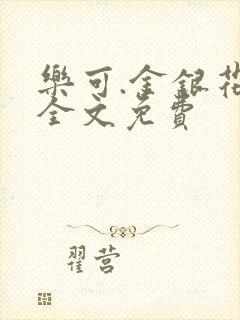 樂可.金銀花
全文免費
翟营